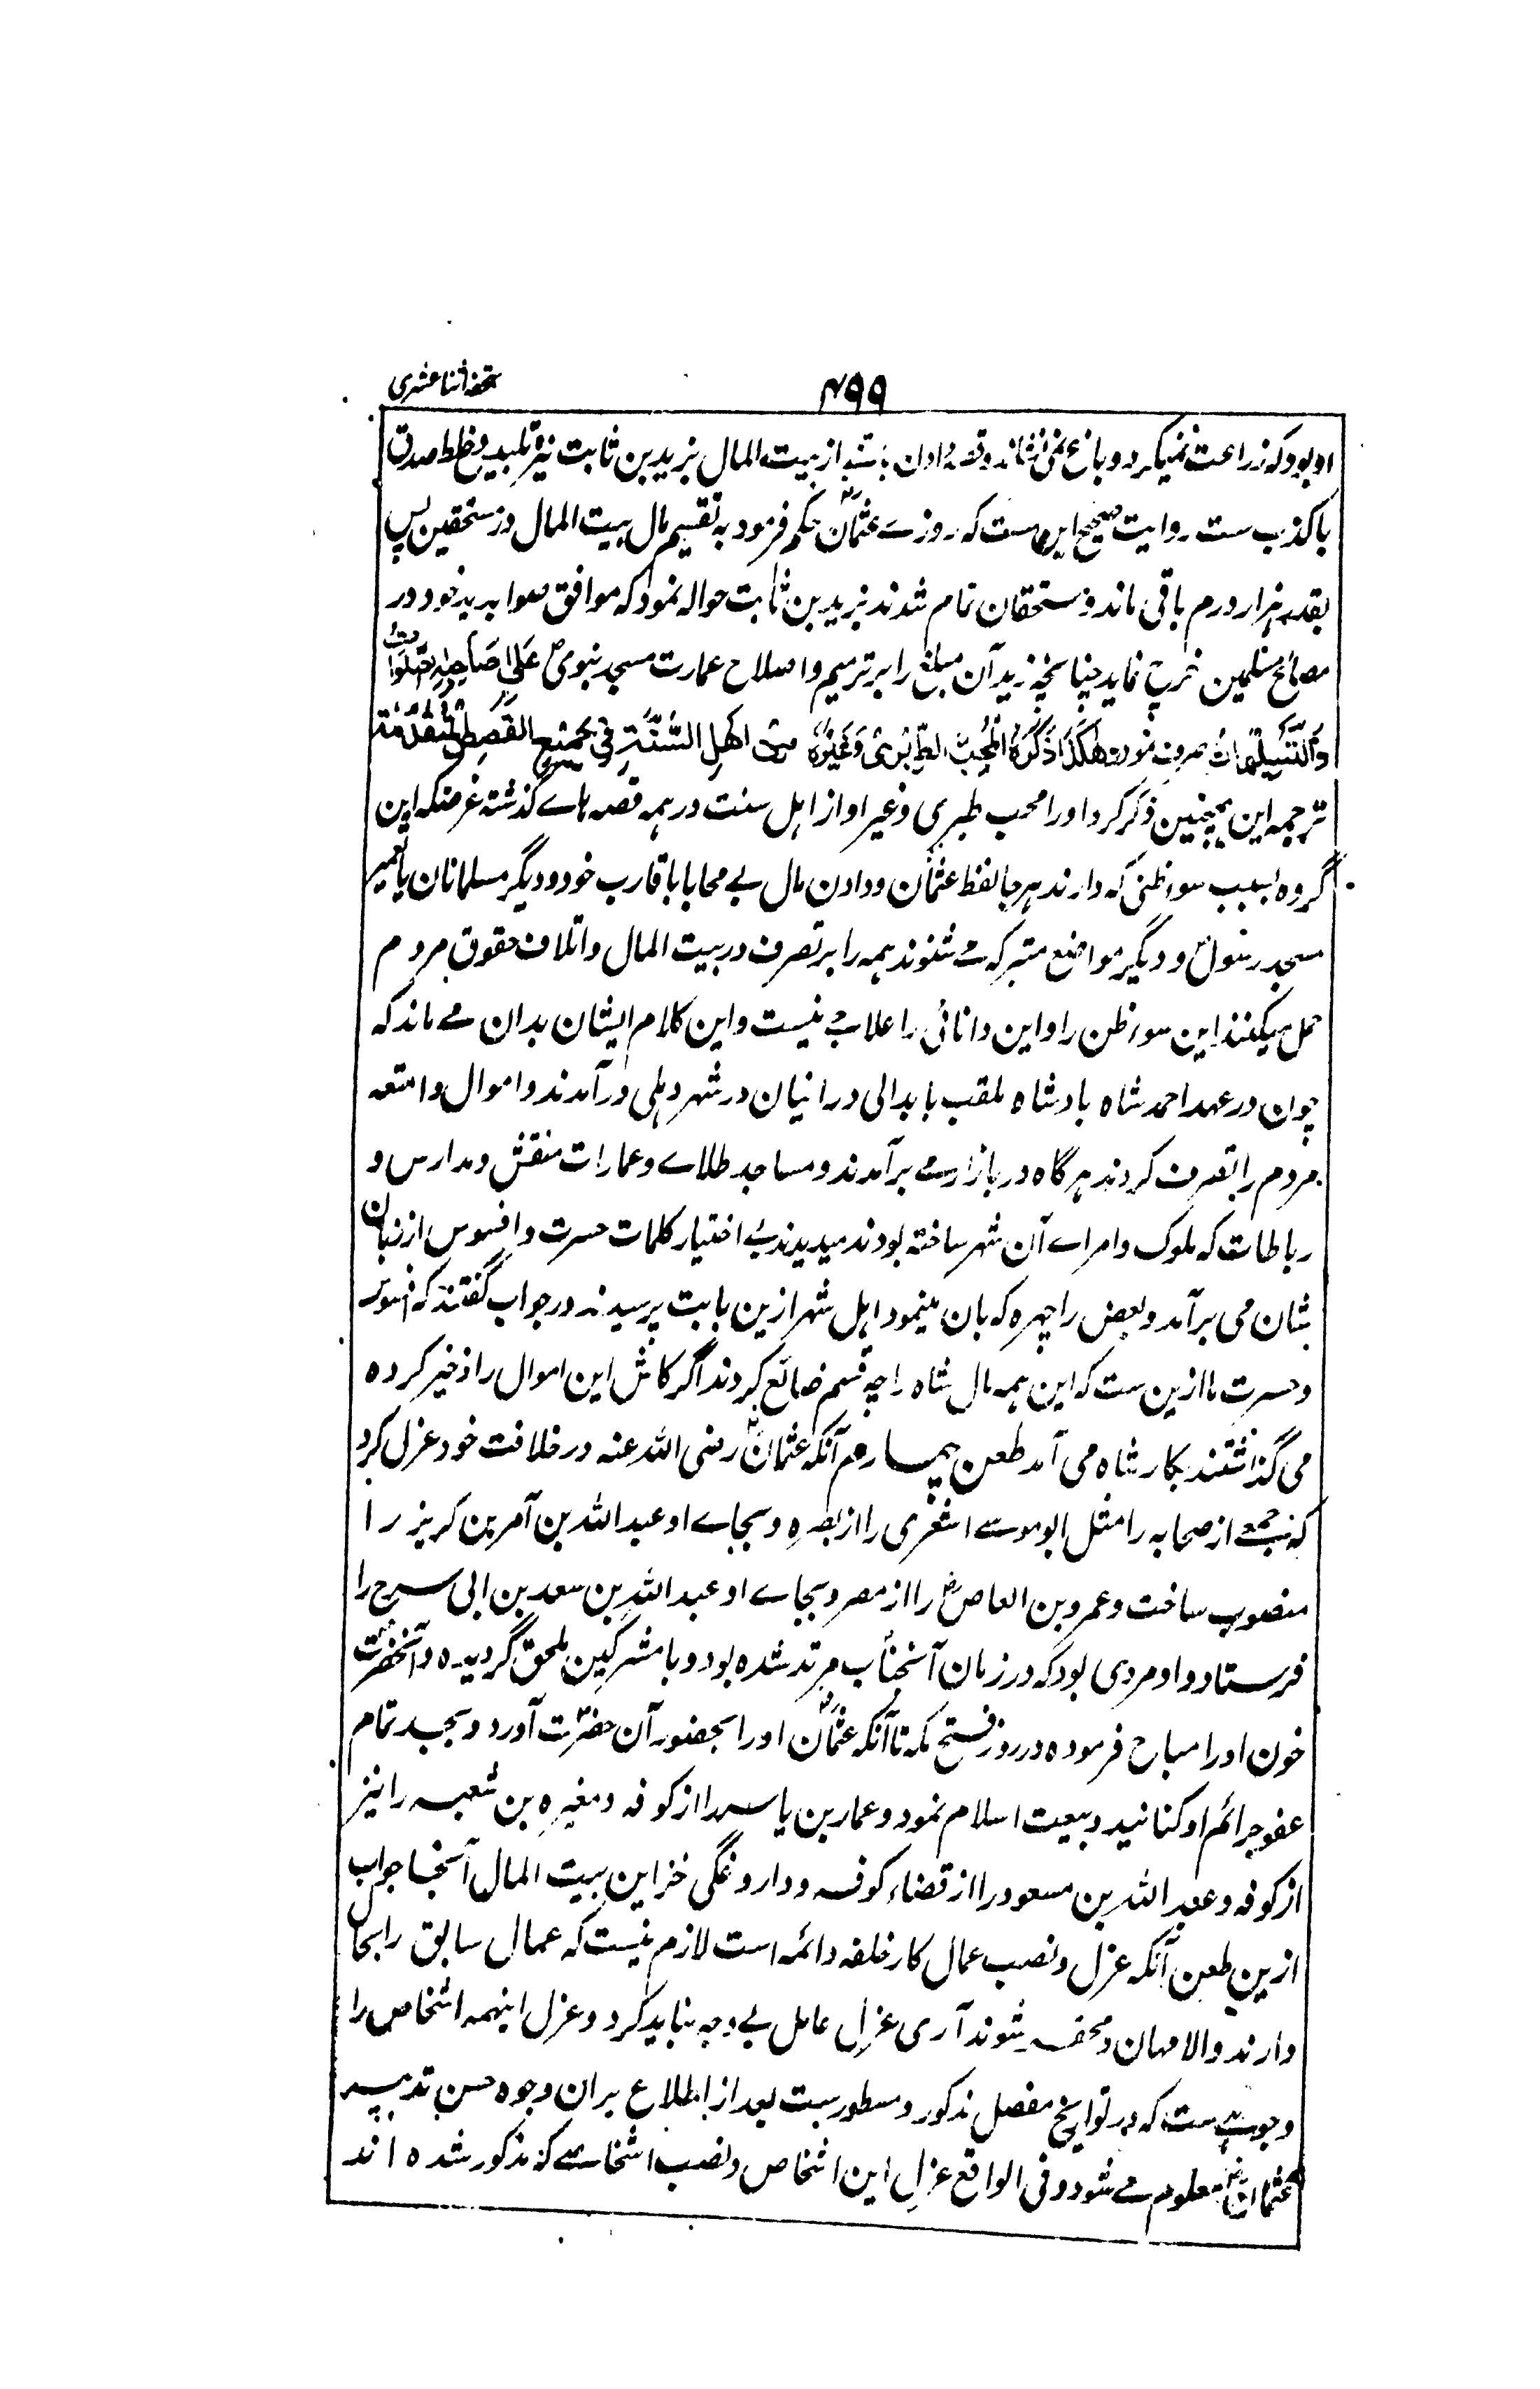 تحفه اثنا عشری
۴۹۹
او بود که زراعت نمیکرد و باغ نمی نشاند و قصه دادن از بیت المال بزید بن ثابت نیز تلبیس و خلط صدق
با کذب ست روایت صحیح این ست که روزے عثمان حکم فرمود به تقسیم مال بیت المال در مستحقین پس
بقدر هزار درم باقی ماند و مستحقان تمام شدند بزید بن ثابت حواله نمود که موافق صوابدید خود در
مصالح مسلمین خرچ نماید چنانچه زید آن مبلغ را بر ترمیم و اصلاح عمارت مسجد نبوی عَلیٰ صَاحِبِهِ الصَّلَوَاتُ
وَالتَّسْلِیْمَاتُ صرف نمود هٰکَذَا ذَکَرَهُ الْمُحِبُّ الطَّبَرِیُّ وَغَیْرُهُ مِنْ اَهْلِ السُّنَّةِ فِیْ جَمِیْعِ القَصَصِ الْمُتَقَدِّمَةِ
ترجمه این همچنین ذکر کرد او را محب طبری و غیر او از اهل سنت در همه قصه هاے گذشته غرضکه این
گروه بسبب سوءظنی که دارند هر جا لفظ عثمان و دادن مال بے محابا باقارب خود و دیگر مسلمانان یا تعمیر
مسجد رسول و دیگر مواضع متبرکه مے شنوند همه را بر تصرف در بیت المال و اتلاف حقوق مردم
حمل میکنند این سوء ظن را و این دانائی را علاجے نیست و این کلام ایشان بدان مے ماند که
چون در عهد احمد شاه بادشاه ملقب بابدالی درانیان در شهر دهلی در آمدند و اموال و امتعه
مردم را تصرف کردند هرگاه در بازار مے برآمدند و مساجد طلاے و عمارات منقش و مدارس و
رباطات که ملوک و امراے آن شهر ساخته بودند میدیدند بے اختیار کلمات حسرت و افسوس از زبان
شان می برآمد و بعض را چهره که بان مینمود اهل شهر ازین بابت پرسیدند در جواب گفتند که افسوس
و حسرت ما ازین ست که این همه مال شاه را چه قسم ضائع کردند اگر کاش این اموال را ذخیر کرده
می گذاشتند بکار شاه می آمد طعن چهارم آنکه عثمان رضی الله عنه در خلافت خود عزل کرد
که جمعے از صحابه را مثل ابو موسے اشعری را از بصره و بجاے او عبد الله بن آمر بن کریز را
منصوب ساخت و عمرو بن العاص را از مصر و بجاے او عبد الله بن سعد بن ابی سرح را
فرستاد و او مردی بود که در زمان آنجناب مرتد شده بود و با مشرکین ملحق گردیده و آنحضرت
خون او را مباح فرموده در روز فتح مکه تا آنکه عثمان او را بحضور آن حضرت آورد و بجد تمام
عفو جرائم او کنانید و بیعت اسلام نمود و عمار بن یاسر را از کوفه و مغیره بن شعبه را نیز
از کوفه و عبد الله بن مسعود را از قضاء کوفه و داروغگی خزاین بیت المال آنجا جواب
ازین طعن آنکه عزل و نصب عمال کار خلفه و ائمه است لازم نیست که عمال سابق را بحال
دارند و الا مهان و محقر شوند آری عزل عامل بے وجه نباید کرد و عزل اینهمه اشخاص را
وجوه ست که در تواریخ مفصل مذکور و مسطور ست بعد از اطلاع بران وجوه حسن تدبیر
عثمان معلوم مے شود و فی الواقع عزل این اشخاص و نصب اشخاصے که مذکور شده اند